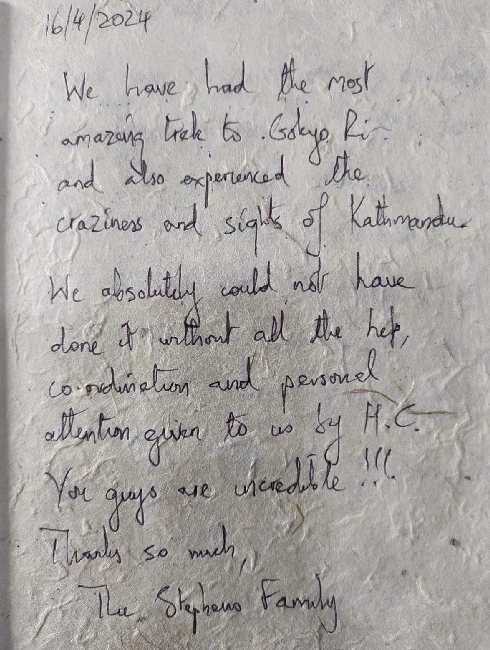 16/4/2024
We have had the most
amazing trek to Gokyo Ri
and also experienced the
craziness and sights of Kathmandu.
We absolutely could not have
done it without all the help,
co-ordination and personal
attention given to us by H.C.
You guys are incredible !!!
Thanks so much,
The Stephens Family